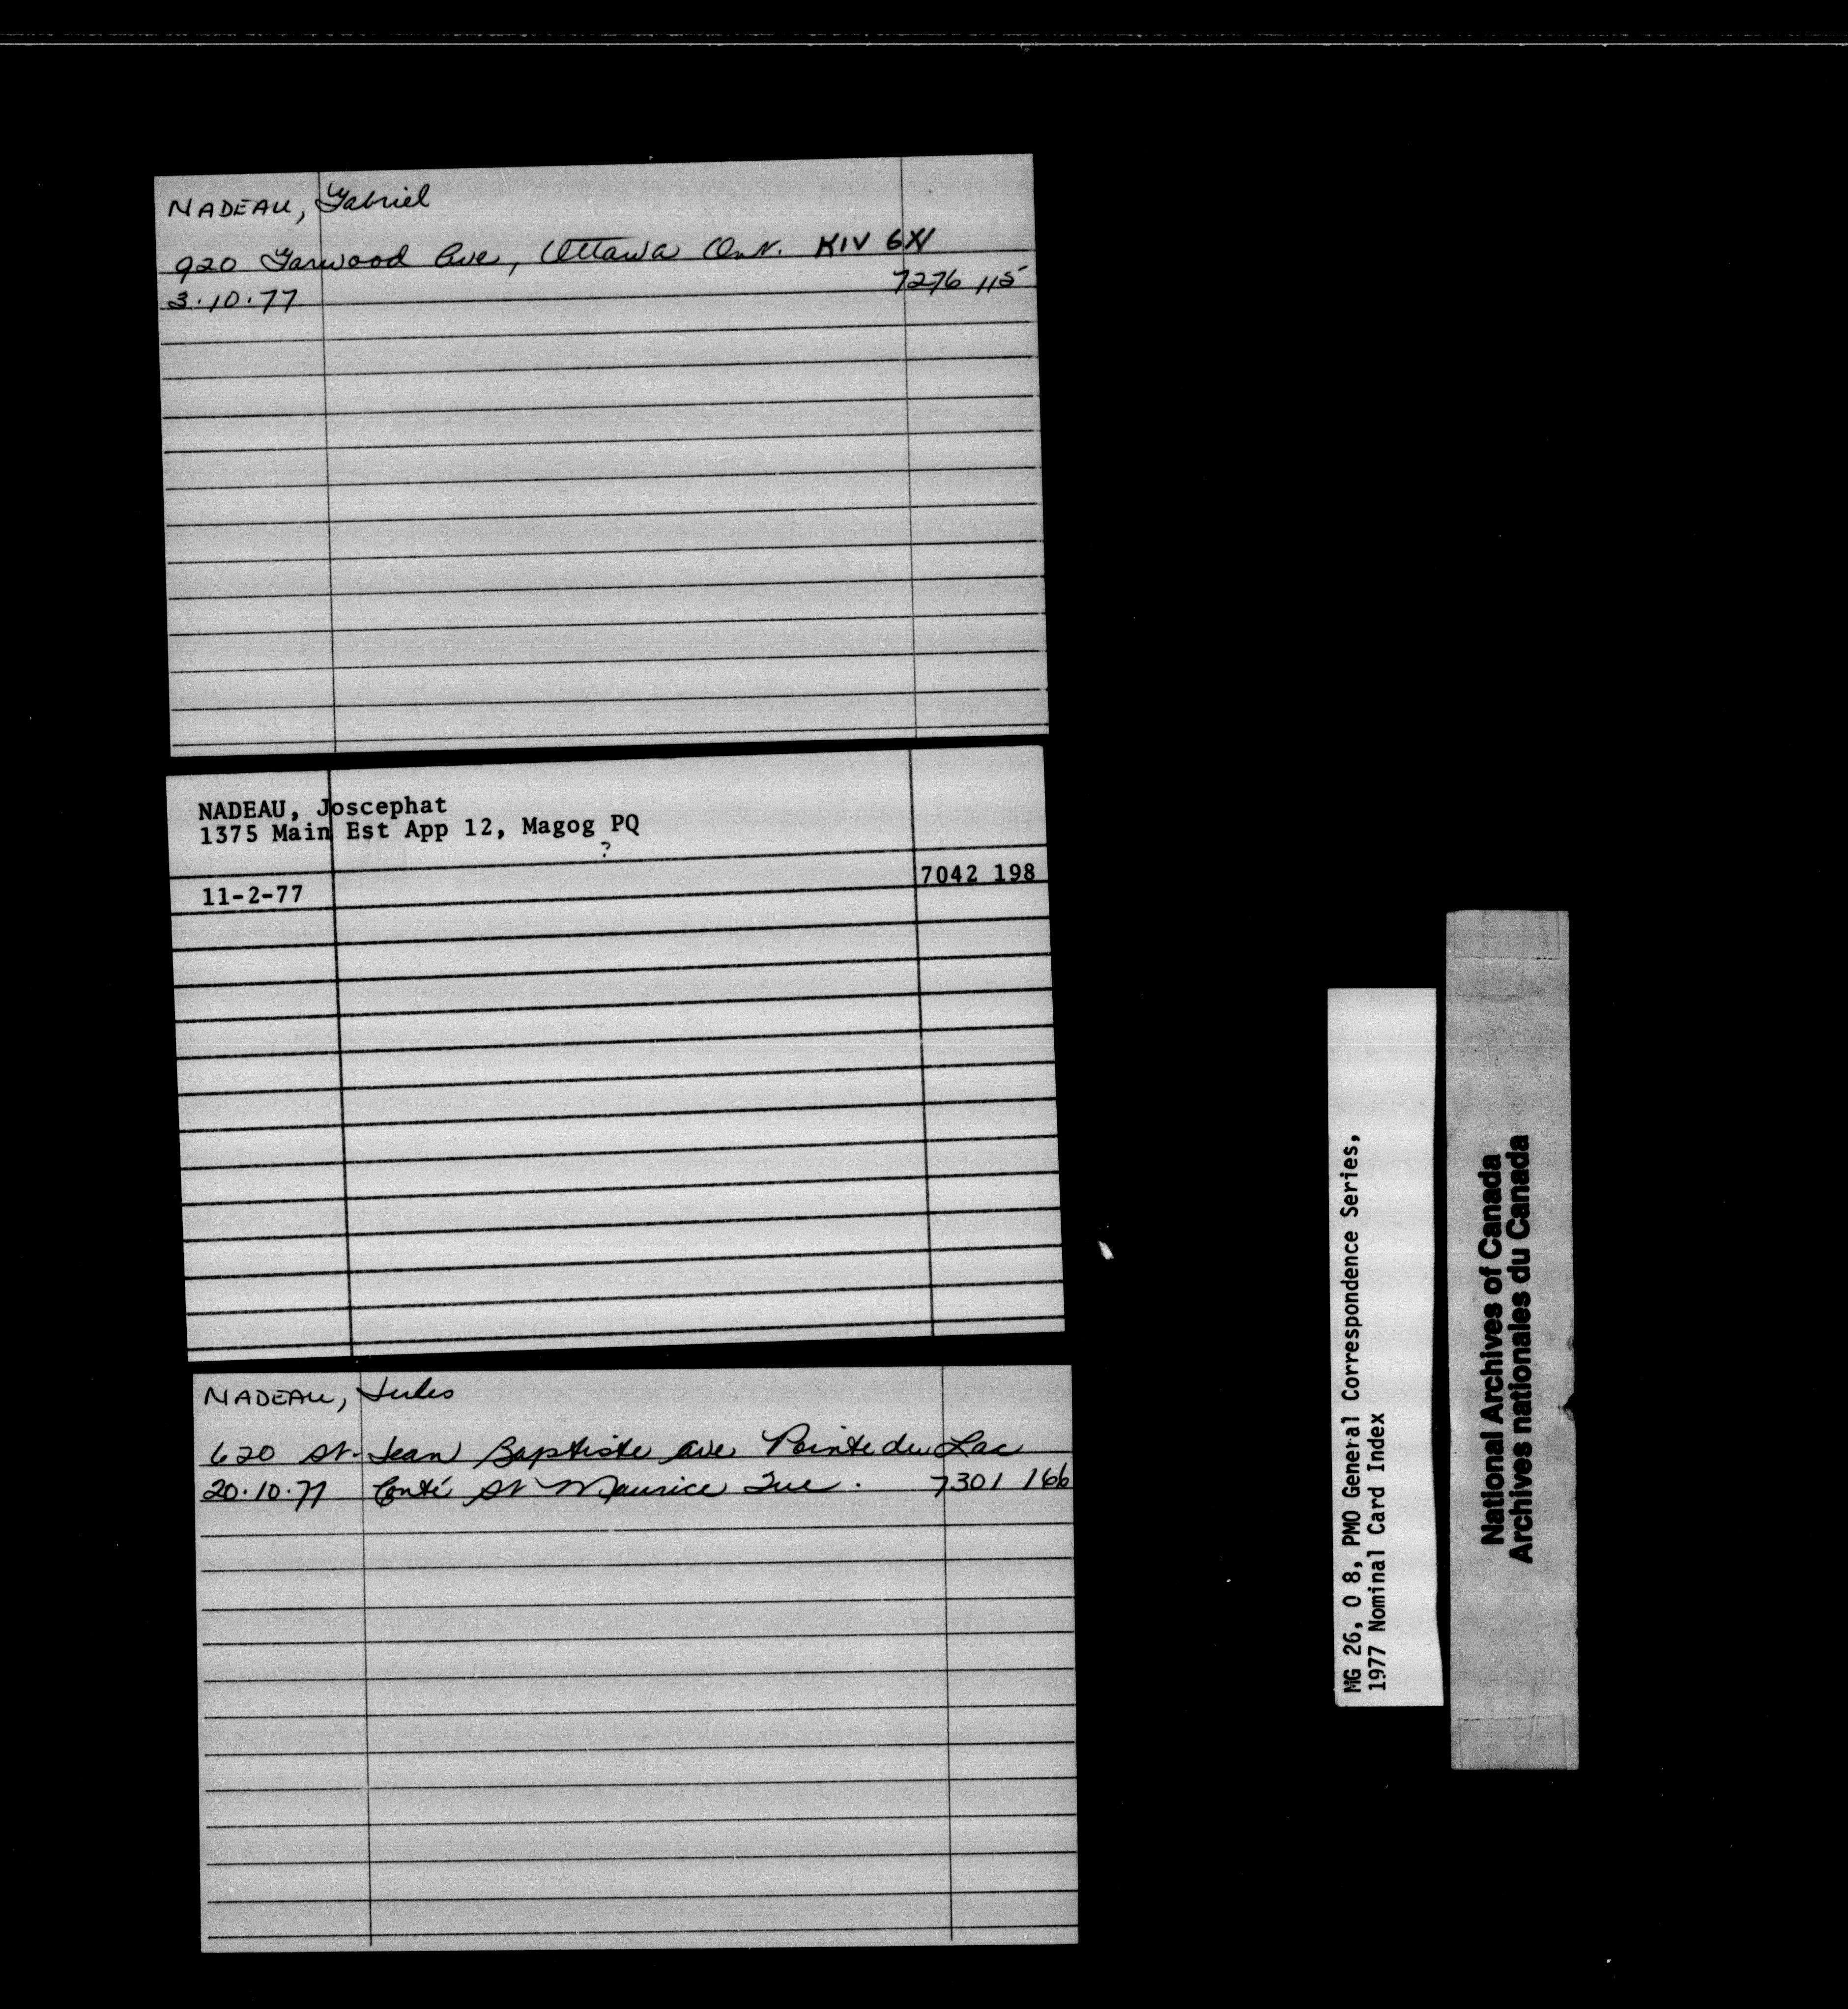 NADEAU, Gabriel
920 Garwood Ave, Ottawa Ont. K1V 6X1
3.10.77 7276 115
NADEAU, Joscephat
1375 Main Est App 12, Magog PQ
?
11-2-77 7042 198
NADEAU, Jules
620 St-Jean Baptiste ave Pointe du Lac
20.10.77 Conté St Maurice Que. 7301 166
MG 26, O 8, PMO General Correspondence Series,
1977 Nominal Card Index
National Archives of Canada
Archives nationales du Canada